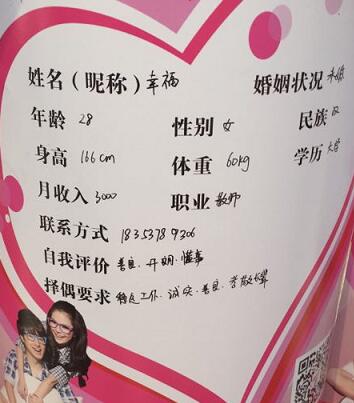 姓名（昵称）幸福 婚姻状况 未婚
年龄 28 性别 女 民族 汉
身高 166cm 体重 60kg 学历 大学
月收入 3000 职业 教师
联系方式 18353789206
自我评价 善良、开朗、懂事
择偶要求 稳定工作、诚实、善良、孝敬长辈